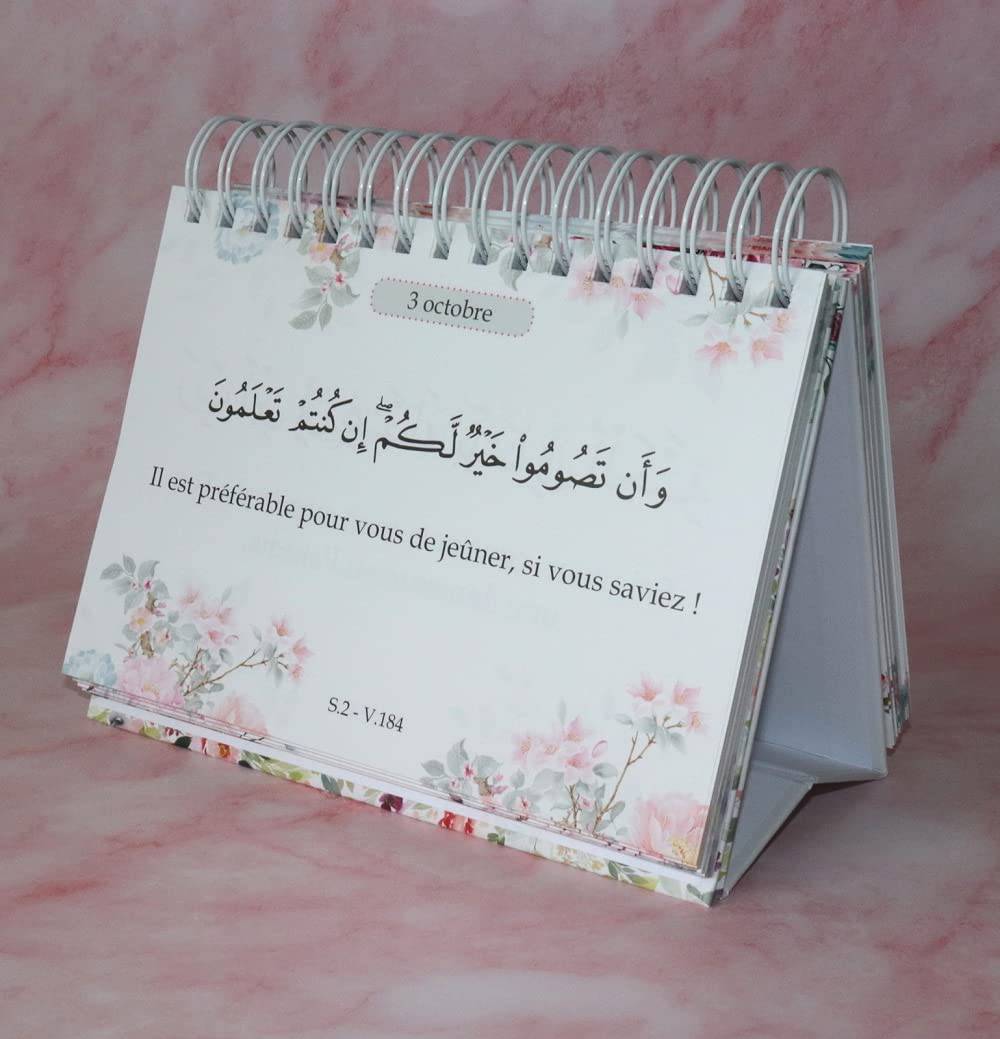 3 octobre
وَأَن تَصُومُوا۟ خَيْرٌ لَّكُمْ ۖ إِن كُنتُمْ تَعْلَمُونَ
Il est préférable pour vous de jeûner, si vous saviez !
S.2 - V.184